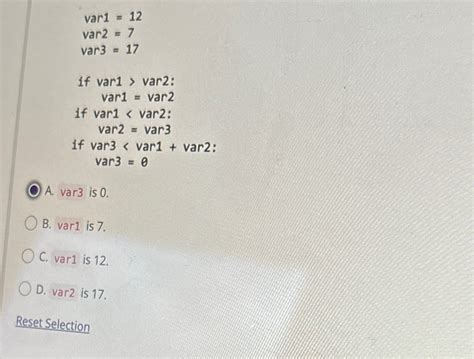 var1 = 12
var2 = 7
var3 = 17
if var1 > var2:
var1 = var2
if var1 < var2:
var2 = var3
if var3 < var1 + var2:
var3 = 0
A. var3 is 0.
B. var1 is 7.
C. var1 is 12.
D. var2 is 17.
Reset Selection